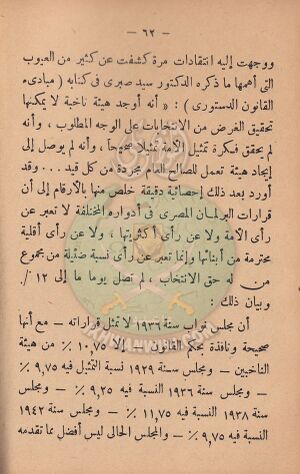 — ٦٢ —
ووجهت إليه انتقادات مرة كشفت عن كثير من العيوب
التى أهمها ما ذكره الدكتور سيد صبرى فى كتابه ( مبادىء
القانون الدستورى ) : « أنه أوجد هيئة ناخبة لا يمكنها
تحقيق الغرض من الانتخابات على الوجه المطلوب ، وأنه
لم يحقق فكرة تمثيل الأمة تمثيلا صحيحاً ، وأنه لم يوصل إلى
إيجاد هيئة تعمل للصالح العام مجردة من كل قيد . . . وقد
أورد بعد ذلك إحصائية دقيقة خلص منها بالأرقام إلى أن
قرارات البرلمان المصرى فى أدواره المختلفة لا تعبر عن
رأى الأمة ولا عن رأى أكثريتها ، ولا عن رأى أقلية
محترمة من أبنائها وإنما تعبر عن رأى نسبة ضئيلة من مجموع
من له حق الانتخاب ، لم تصل يوما ما إلى ١٢ ٪
وبيان ذلك :
أن مجلس نواب سنة ١٩٢٦ لا تمثل قراراته — مع أنها
صحيحة ونافذة بحكم القانون — إلا ١٠,٧٥ ٪ من هيئة
الناخبين — ومجلس سنة ١٩٢٩ نسبة التمثيل فيه ٩,٧٥
٪ — ومجلس سنة ١٩٣٦ النسبة فيه ٩,٢٥ ٪ — ومجلس
سنة ١٩٣٨ النسبة فيه ١١,٧٥ ٪ — ومجلس سنة ١٩٤٢
النسبة فيه ٩,٧٥ ٪ — والمجلس الحالى ليس أفضل بما تقدمه